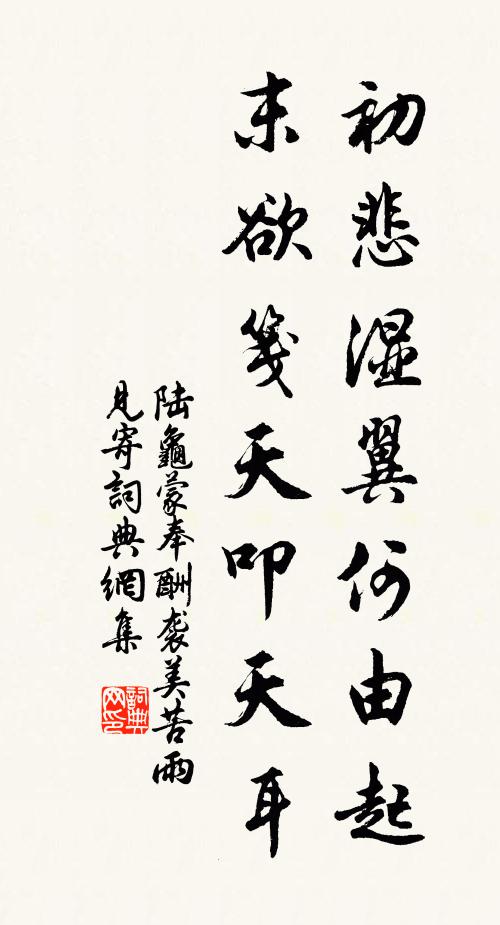 初悲濕翼何由起
末欲箋天叩天耳
陆龜蒙奉酬袭美苦雨
見寄詞典網集
詞典
网印